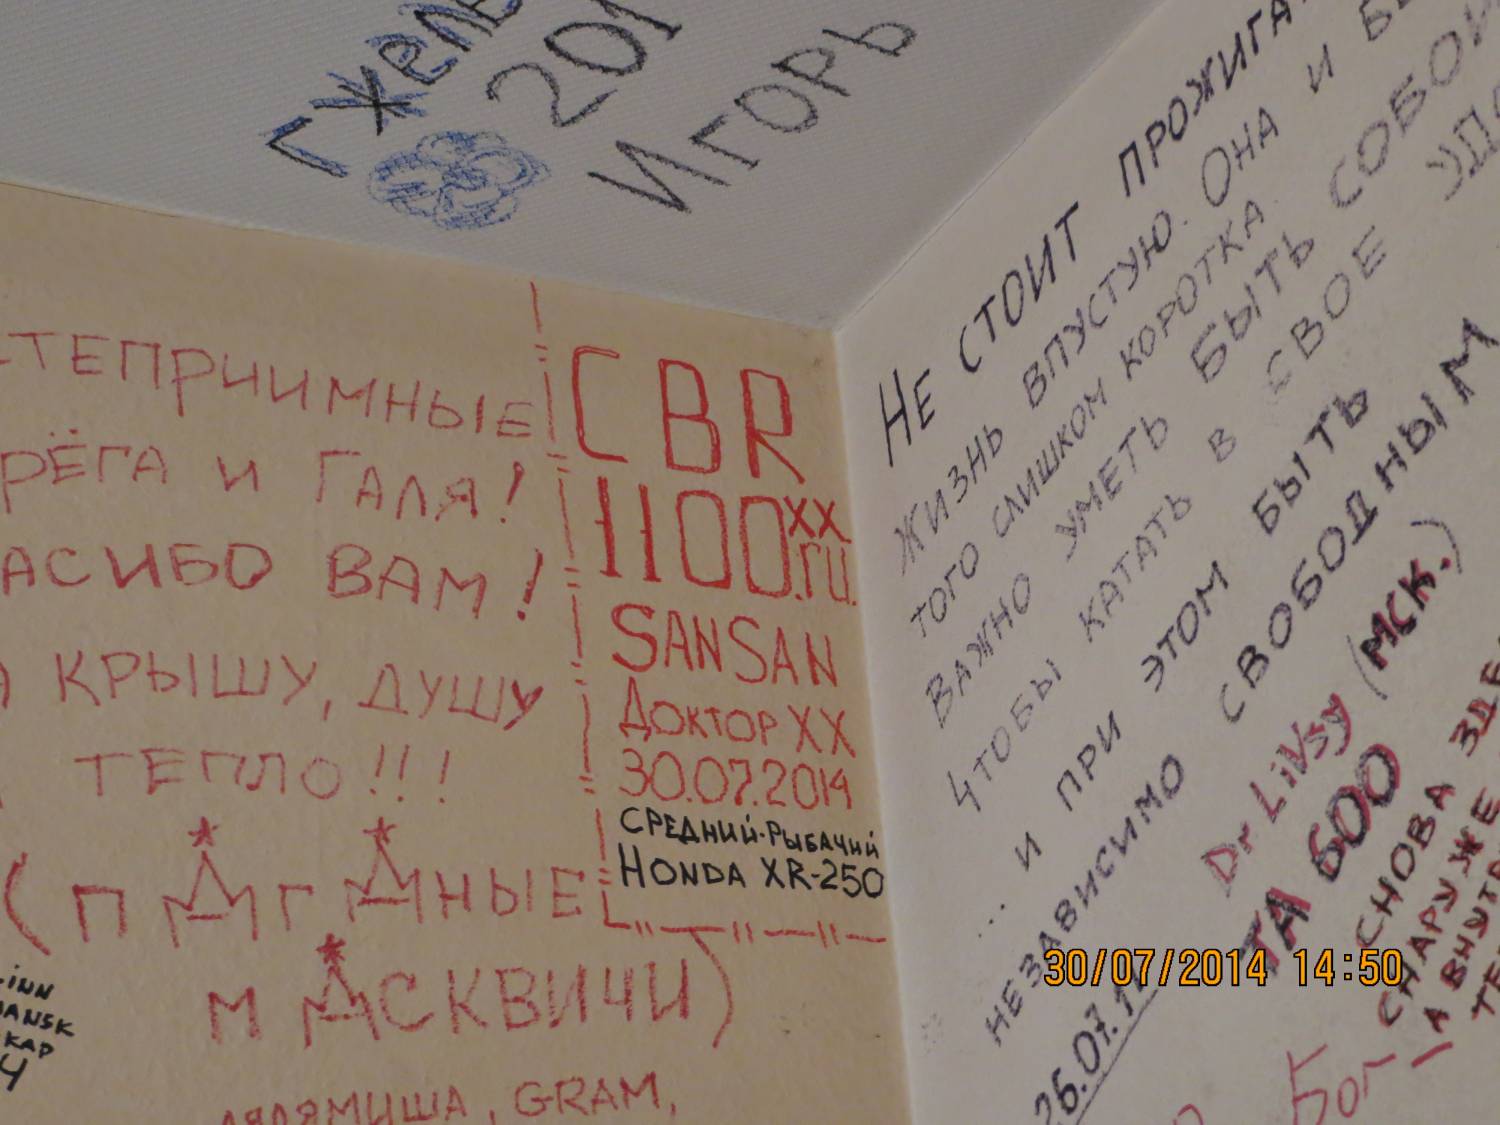 ГЖЕЛЬ
201
ИГОРЬ
СТЕПРИИМНЫЕ
РЁГА И ГАЛЯ!
АСИБО ВАМ!
КРЫШУ, ДУШУ
ТЕПЛО!!!
(ПАГАНЫЕ
МАСКВИЧИ)
ЛЯЛЯМИША, GRAM,
CBR
1100XX
.RU.
SANSAN
ДОКТОР XX
30.07.2014
СРЕДНИЙ-РЫБАЧИЙ
HONDA XR-250
НЕ СТОИТ ПРОЖИГА
ЖИЗНЬ ВПУСТУЮ. ОНА И БЕ
ТОГО СЛИШКОМ КОРОТКА.
ВАЖНО УМЕТЬ БЫТЬ СОБОЙ
ЧТОБЫ КАТАТЬ В СВОЕ УДО
... И ПРИ ЭТОМ БЫТЬ
НЕЗАВИСИМО СВОБОДНЫМ
26.07.1
Dr LiVsy (МСК.)
ТА 600
СНОВА ЗДЕ
СНАРУЖЕ
А ВНУТР
30/07/2014 14:50